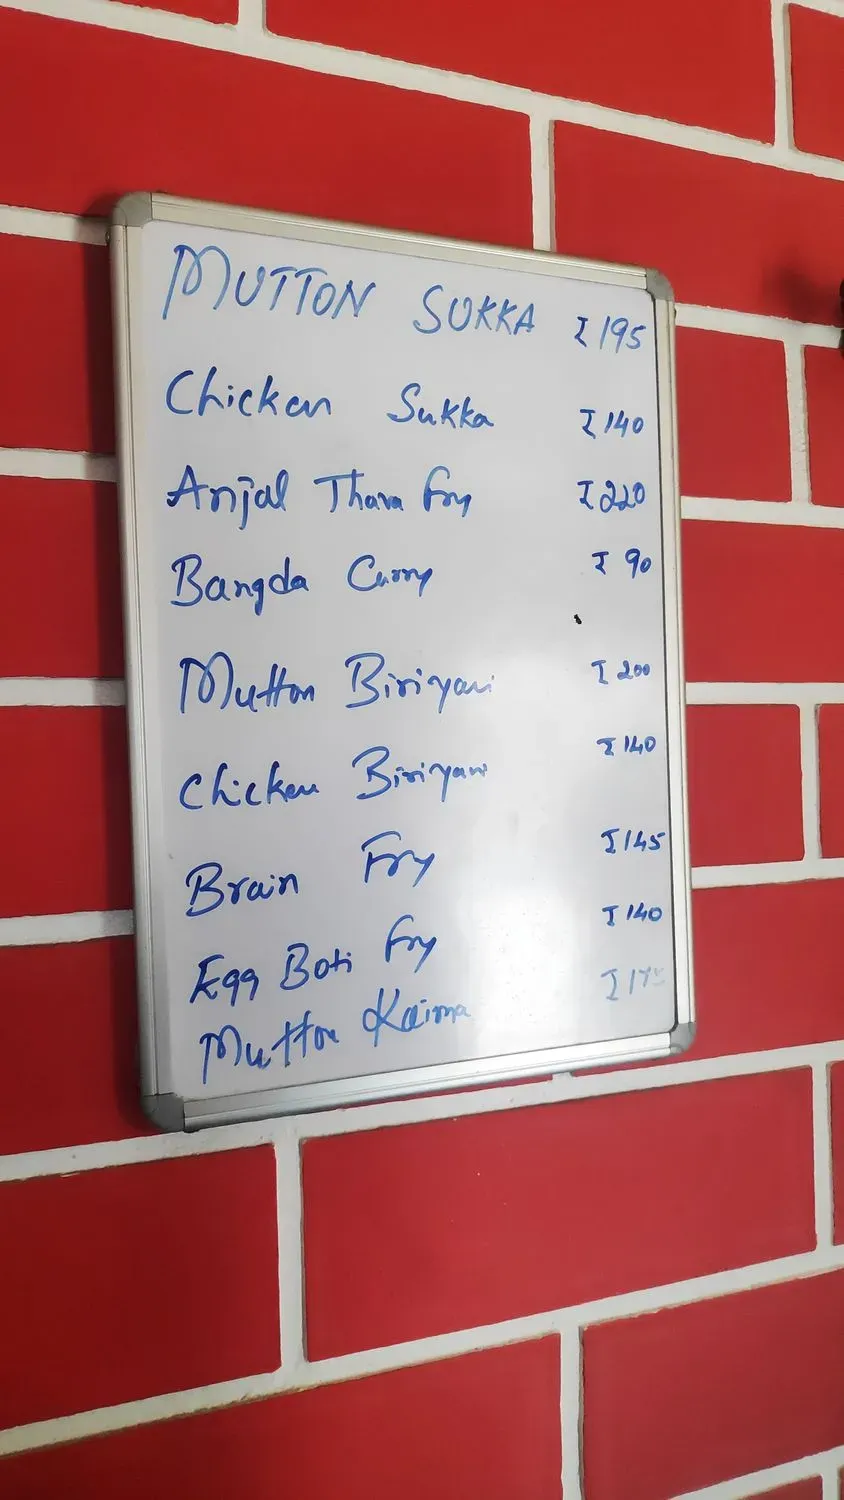 MUTTON SUKKA ₹195
Chicken Sukka ₹140
Anjal Thava Fry ₹220
Bangda Curry ₹ 90
Mutton Biriyani ₹200
Chicken Biriyani ₹140
Brain Fry ₹145
Egg Boti Fry ₹140
Mutton Kaima